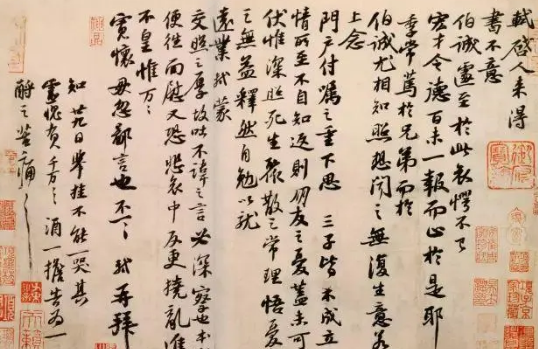 軾啓人來得
書不意
伯誠遽至於此哀愕不已
宏才令德百未一報而止於是耶
季常篤於兄弟而於
伯誠尤相知照想聞之無復生意若
上念
門戶付囑之重下思 三子皆不成立
情所至不自知返則朋友之憂蓋未可
伏惟深照死生聚散之常理悟憂
之無益釋然自勉以就
遠業軾蒙
交照之厚故吐不諱之言必深察也本
便往面慰又恐悲哀中反更撓亂進
不皇惟万万
寬懷毋忽鄙言也不一一 軾再拜
知廿九日舉挂不能一哭其
靈愧負千万千万酒一擔告為一
酹之苦痛苦痛